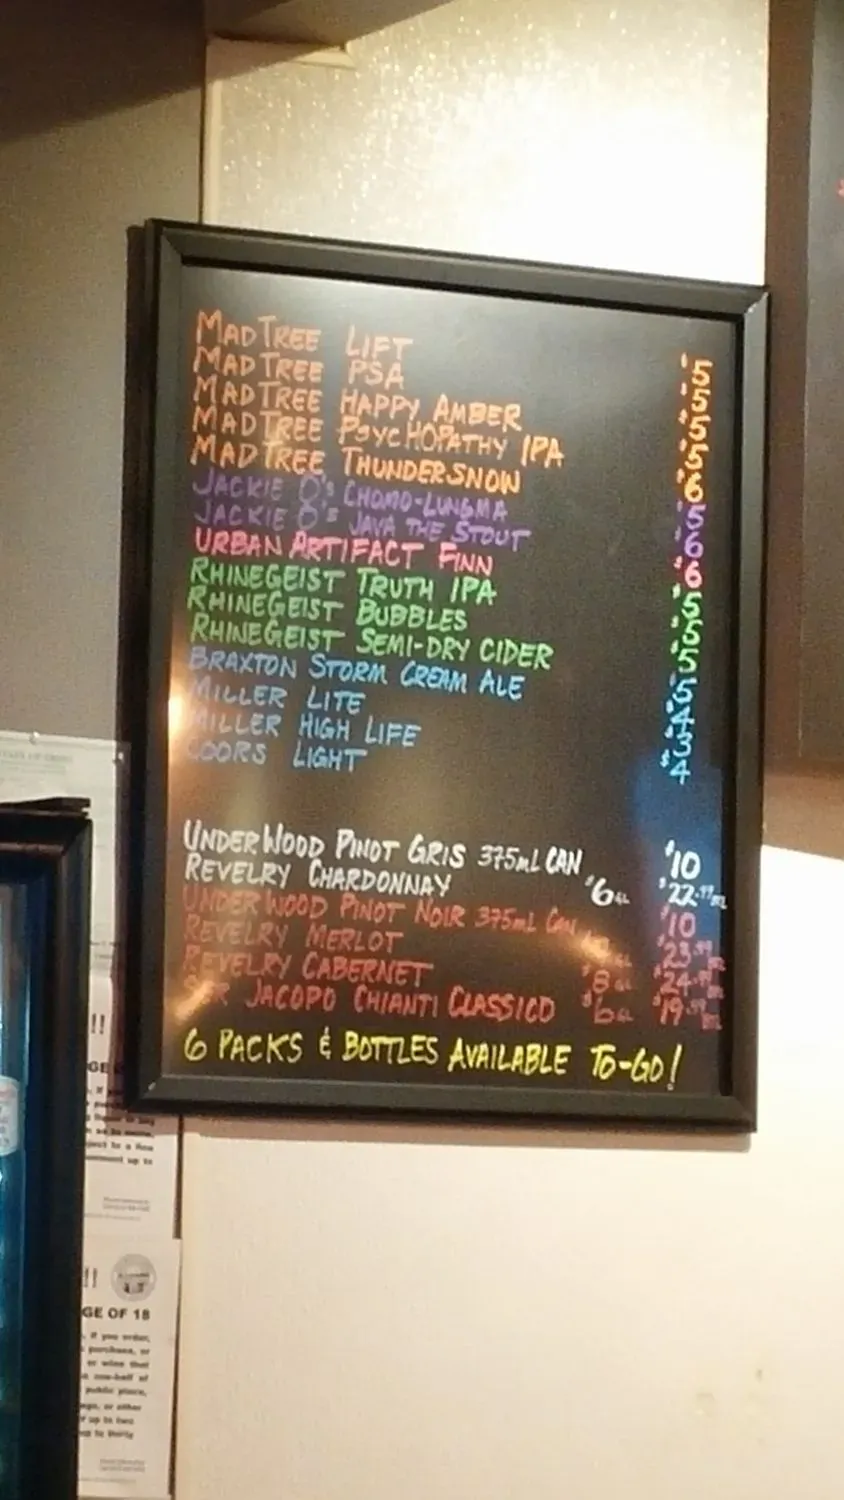 MADTREE LIFT $5
MADTREE PSA $5
MADTREE HAPPY AMBER $5
MADTREE PSYCHOPATHY IPA $5
MADTREE THUNDERSNOW $6
JACKIE O'S CHOMO-LUNGMA $5
JACKIE O'S JAVA THE STOUT $6
URBAN ARTIFACT FINN $6
RHINEGEIST TRUTH IPA $5
RHINEGEIST BUBBLES $5
RHINEGEIST SEMI-DRY CIDER $5
BRAXTON STORM CREAM ALE $5
MILLER LITE $4
MILLER HIGH LIFE $3
COORS LIGHT $4
UNDERWOOD PINOT GRIS 375mL CAN $10
REVELRY CHARDONNAY $6 GL $22.99 BTL
UNDERWOOD PINOT NOIR 375mL CAN $10
REVELRY MERLOT GL $23.99 BTL
REVELRY CABERNET $8 GL $24.99 BTL
SER JACOPO CHIANTI CLASSICO $6 GL $19.99 BTL
6 PACKS & BOTTLES AVAILABLE TO-GO!
!!
GE
!!
GE OF 18
if you order,
purchase, or
or wine that
one-half of
public place,
or other
up to two
to thirty